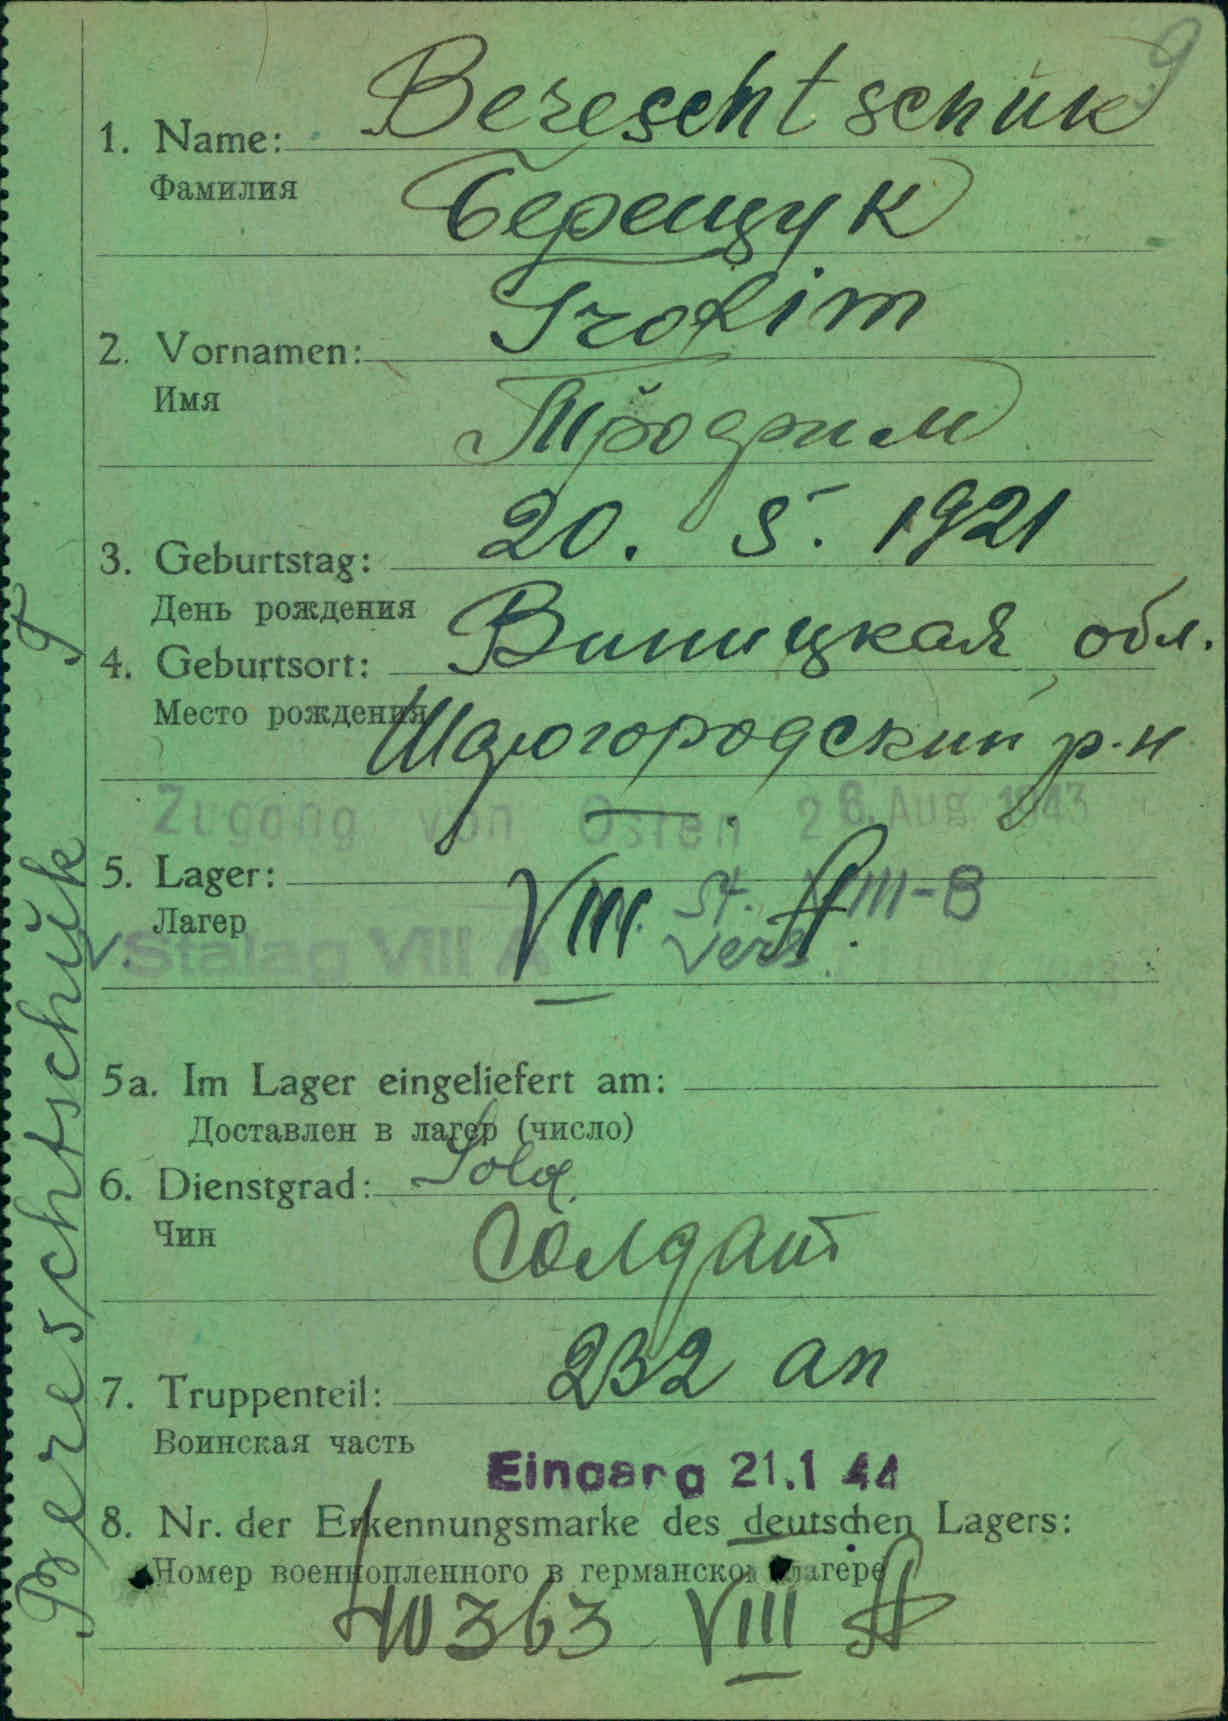 9
Bereschtschuk
1. Name:
Фамилия
Берещук
Trofim
2. Vornamen:
Имя
Трофим
20. 5. 1921
3. Geburtstag:
День рождения
Виницкая обл.
4. Geburtsort:
Место рождения
Шаргородский р-н
Zugang von Osten 26. Aug 1943
5. Lager:
VIII A. St. VIII-B
Лагер
Stalag VIII A
Vers.
5a. Im Lager eingeliefert am:
Доставлен в лагер (число)
6. Dienstgrad: Sold.
Чин
Солдат
232 ап
7. Truppenteil:
Воинская часть
Eingang 21.1 44
8. Nr. der Erkennungsmarke des deutschen Lagers:
Номер военнопленного в германском лагере
40363 VIII A
Bereschtschuk T